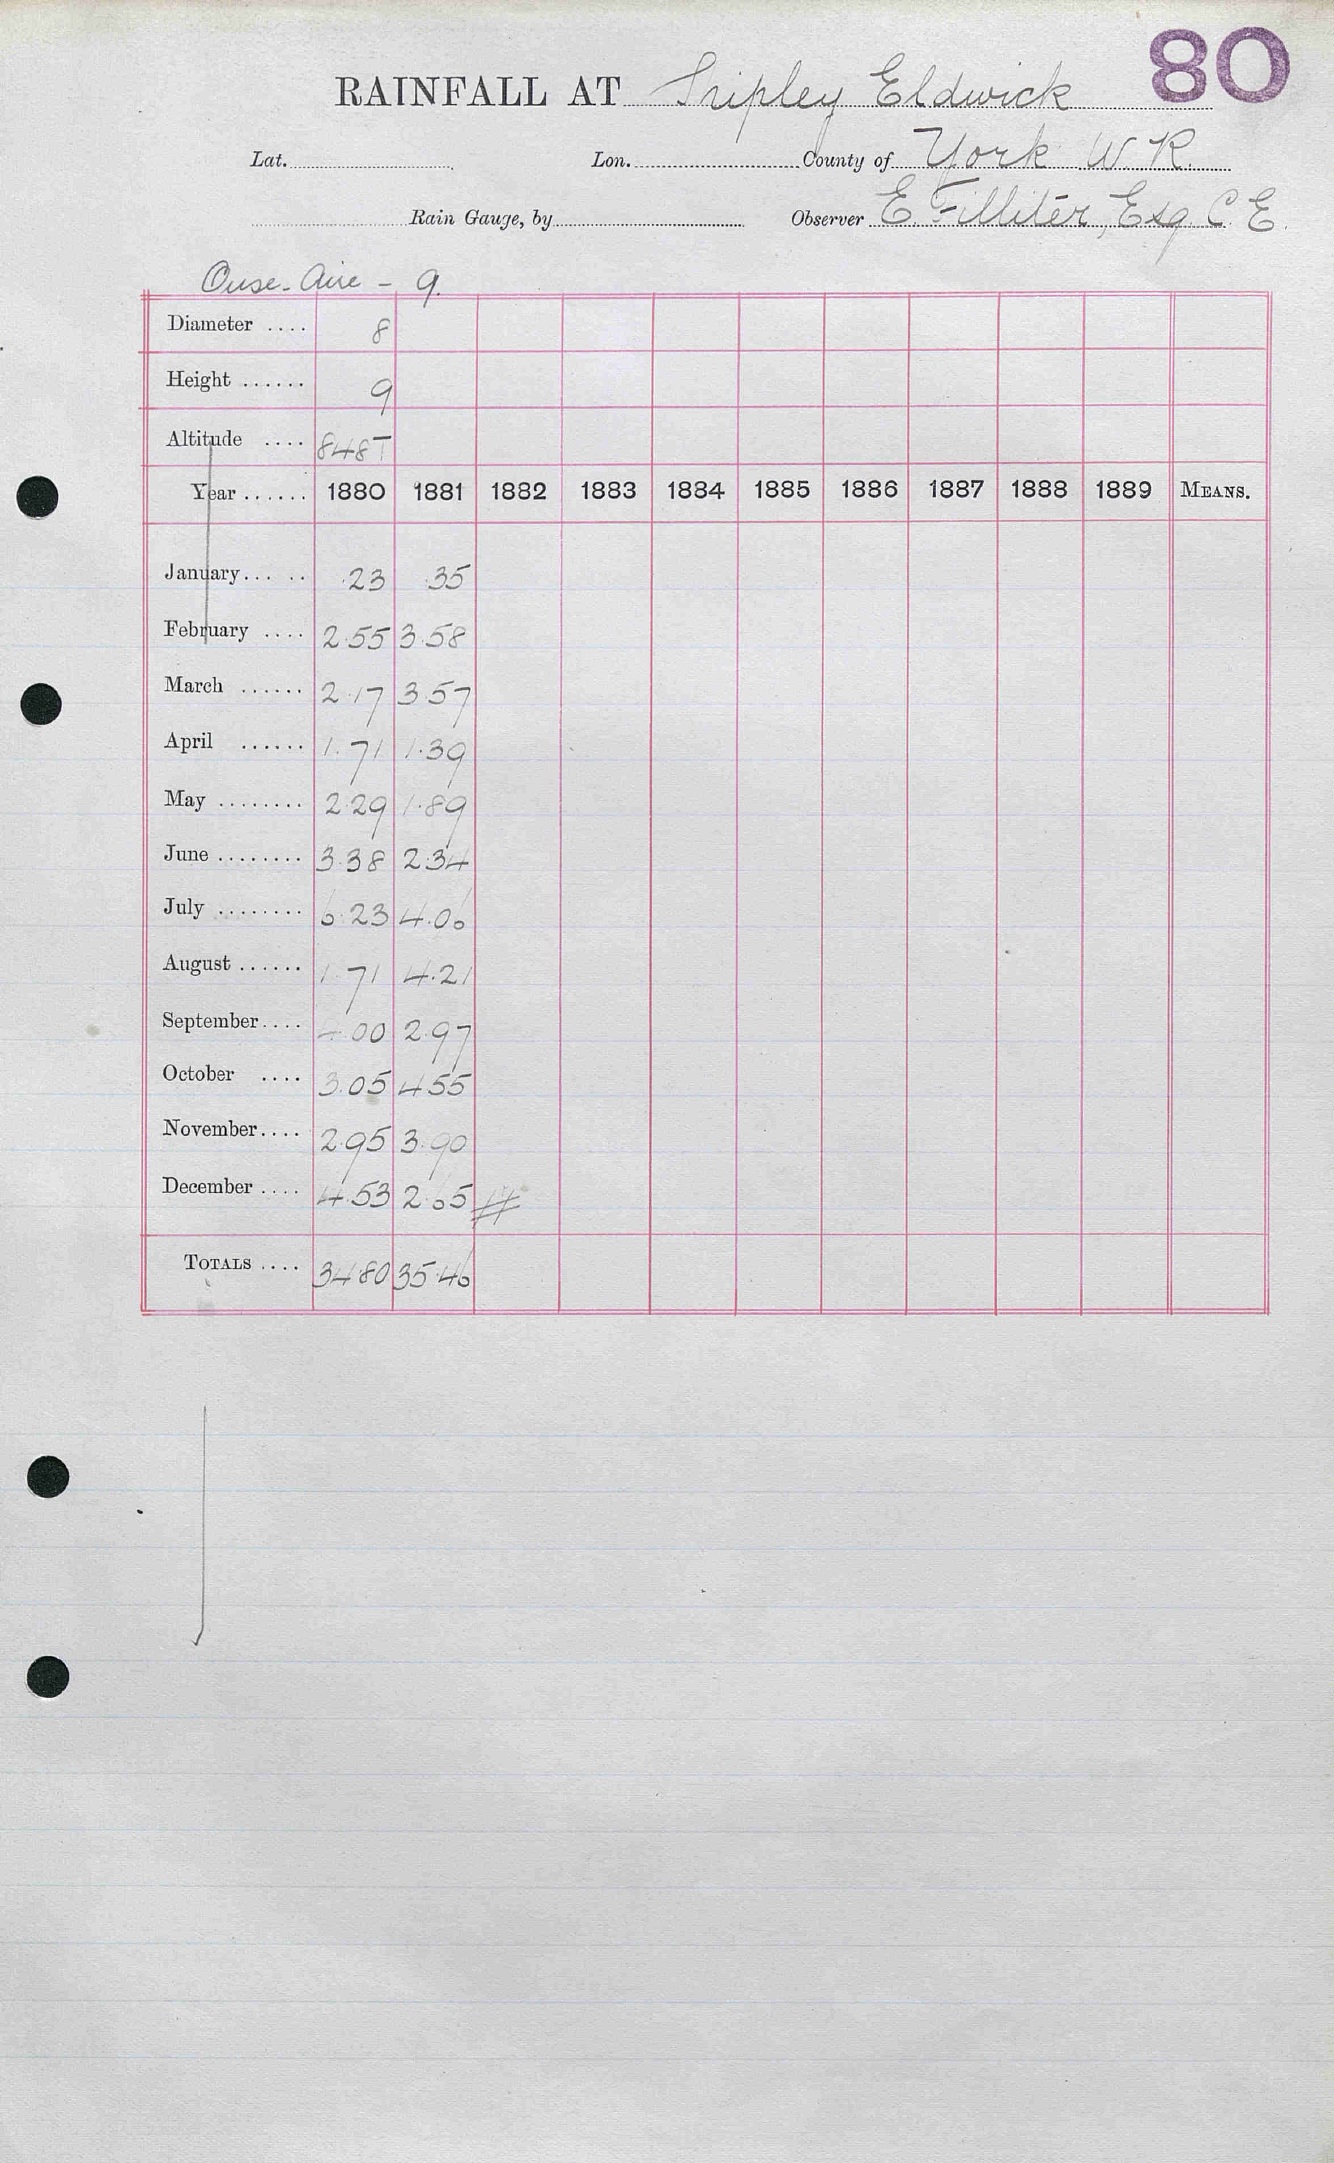 80
RAINFALL AT Shipley Eldwick
Lat. Lon. County of York W.R.
Rain Gauge, by Observer E. Filliter, Esq. C.E.
Ouse-Aire - 9.
Diameter .... 8
Height ...... 9
Altitude .... 848T
Year ...... 1880 1881 1882 1883 1884 1885 1886 1887 1888 1889 MEANS.
January... .. .23 .35
February .... 2.55 3.58
March ...... 2.17 3.57
April ...... 1.71 1.39
May ........ 2.29 1.89
June ........ 3.38 2.34
July ........ 6.23 4.06
August ...... 1.71 4.21
September.... 4.00 2.97
October .... 3.05 4.55
November.... 2.95 3.90
December .... 4.53 2.65
TOTALS .... 34.80 35.46